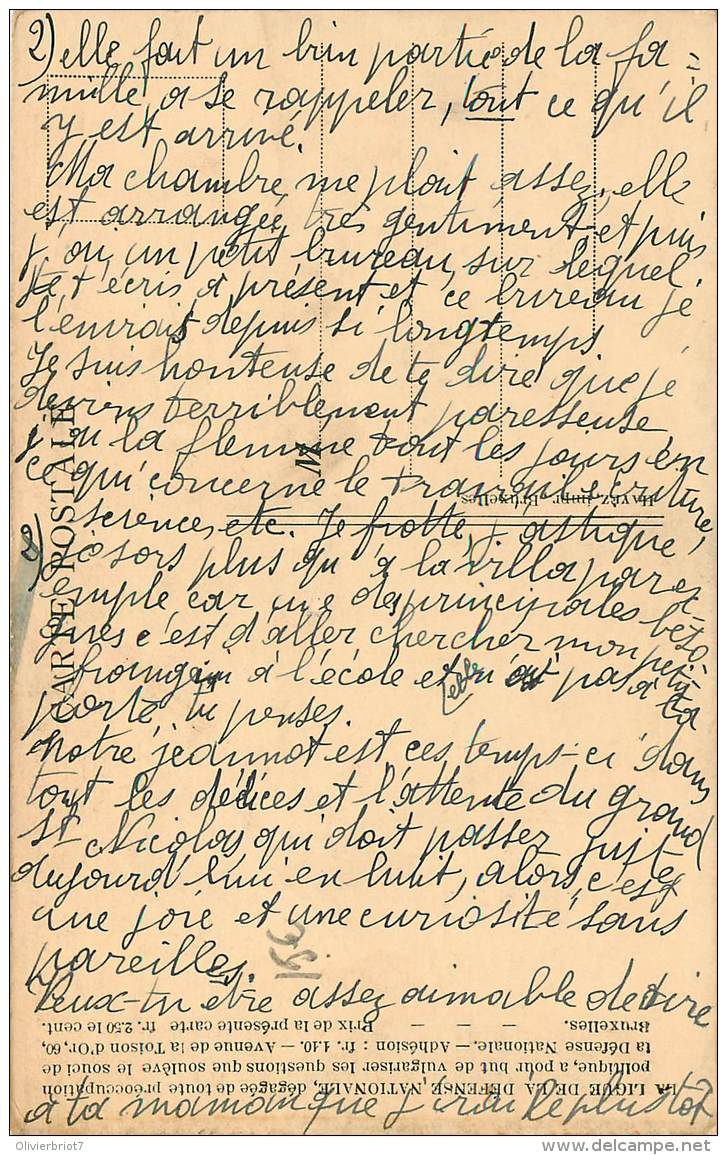 2) elle fait un brin partie de la fa=
mille, a se rappeler, tout ce qu'il
y est arrivé.
Ma chambre me plait assez, elle
est arrangée très gentiment et puis
j'ai un petit bureau, sur lequel
je t'écris a présent et ce bureau je
l'enviais depuis si longtemps
Je suis honteuse de te dire que je
deviens terriblement paresseuse
j'ai la flemme tout les jours en
ce qui concerne le travail, écriture,
sciences, etc. Je frotte, j'astique,
je sors plus qu'à la villa par ex-
emple car une de principales béso
gnes c'est d'aller chercher mon petit
frangin à l'école et n'est pas à ta
porte, tu penses.
Notre jeannot est ces temps-ci dans
tout les délices et l'attente du grand
St Nicolas qui doit passer juste
aujourd'hui en huit, alors, c'est
une joie et une curiosité sans
pareilles.
Veux-tu etre assez aimable de dire
a ta maman que j'irai le plus tot
CARTE POSTALE
HAVEZ, impr. Bruxelles
LA LIGUE DE LA DÉFENSE NATIONALE, dégagée de toute préoccupation
politique, a pour but de vulgariser les questions que soulève le souci de
la Défense Nationale. — Adhésion : fr. 1.10. — Avenue de la Toison d'Or, 60,
Bruxelles. — — — Prix de la présente carte fr. 2.50 le cent.
Olivierbriot7